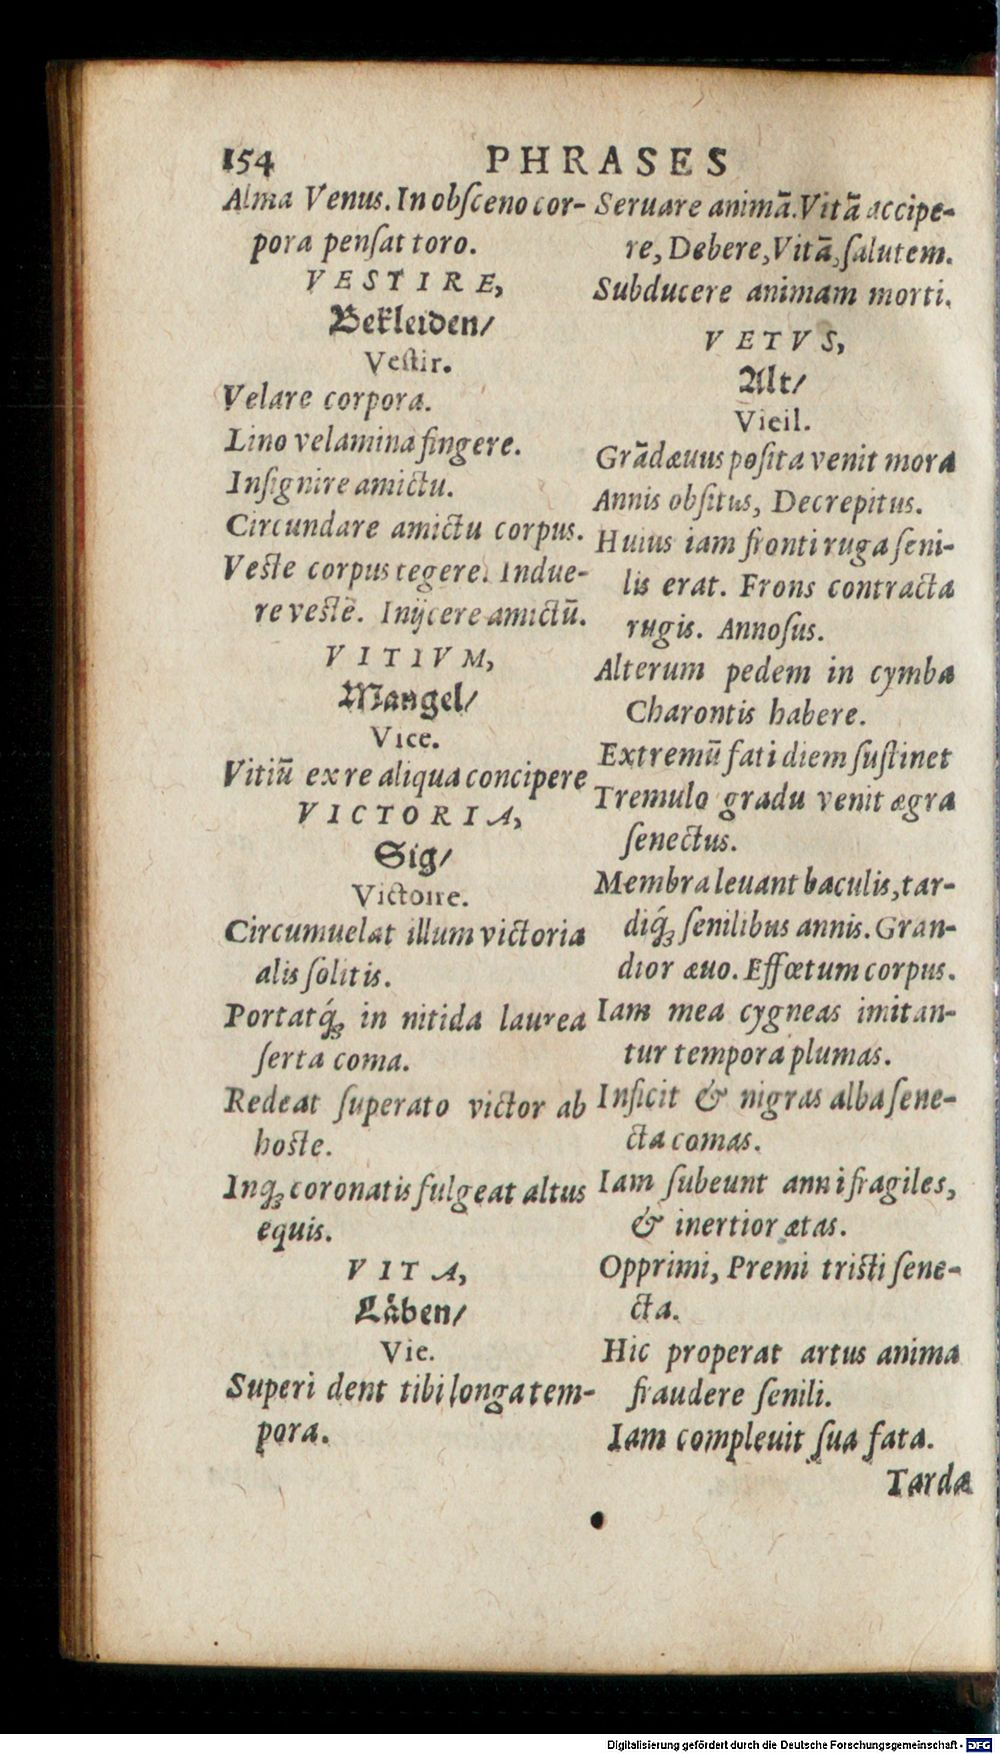 154 PHRASES
Alma Venus. In obſceno cor-
pora penſat toro.
VESTIRE,
Bekleiden/
Veſtir.
Velare corpora.
Lino velamina fingere.
Inſignire amictu.
Circundare amictu corpus.
Veſte corpus tegere. Indue-
re veſtē. Inijcere amictū.
VITIVM,
Mangel/
Vice.
Vitiū ex re aliqua concipere
VICTORIA,
Sig/
Victoire.
Circumuelat illum victoria
alis ſolitis.
Portatq́ꝫ in nitida laurea
ſerta coma.
Redeat ſuperato victor ab
hoſte.
Inqꝫ coronatis fulgeat altus
equis.
VITA,
Låben/
Vie.
Superi dent tibi longa tem-
pora.
Seruare animā. Vitā accipe-
re, Debere, Vitā, ſalutem.
Subducere animam morti.
VETVS,
Alt/
Vieil.
Grādæuus poſita venit mora
Annis obſitus, Decrepitus.
Huius iam fronti ruga ſeni-
lis erat. Frons contracta
rugis. Annoſus.
Alterum pedem in cymba
Charontis habere.
Extremū fati diem ſuſtinet
Tremulo gradu venit ægra
ſenectus.
Membra leuant baculis, tar-
diq́ꝫ ſenilibus annis. Gran-
dior æuo. Effœtum corpus.
Iam mea cygneas imitan-
tur tempora plumas.
Inficit & nigras alba ſene-
cta comas.
Iam ſubeunt anni fragiles,
& inertior ætas.
Opprimi, Premi triſti ſene-
cta.
Hic properat artus anima
fraudere ſenili.
Iam compleuit ſua fata.
Tardæ
Digitalisierung gefördert durch die Deutsche Forschungsgemeinschaft - DFG